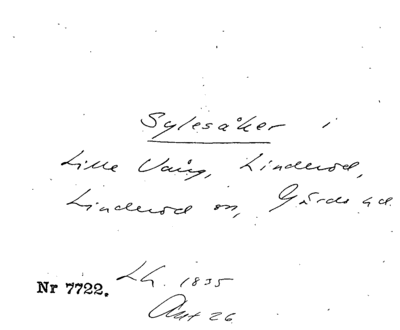 Sylesåker i
Lille Vång, Linderöd,
Linderöd sn, Gärds hd.
Nr 7722. LG. 1835
Akt 26